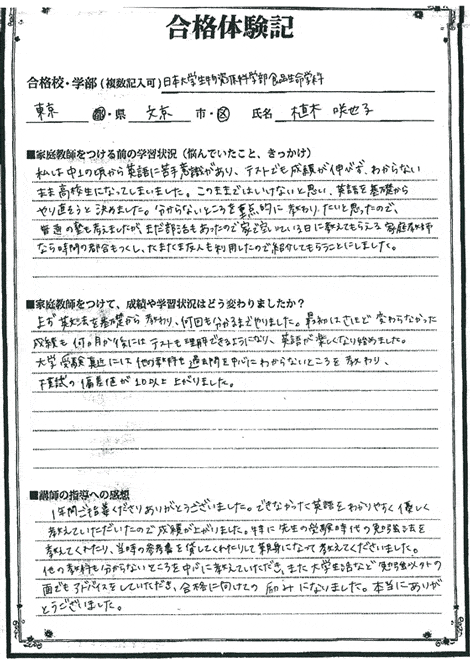 合格体験記
合格校・学部(複数記入可)日本大学生物資源科学部食品生命学科
東京 都・県 文京 市・区 氏名 植木 咲也子
■家庭教師をつける前の学習状況(悩んでいたこと、きっかけ)
私は中1の頃から英語に苦手意識があり、テストでも成績が伸びず、わからない
まま高校生になってしまいました。このままではいけないと思い、英語を基礎から
やり直そうと決めました。分からないところを重点的に教わりたいと思ったので、
普通の塾も考えましたが、まだ部活もあったので家で空いている日に教えてもらえる家庭教師
なら時間の都合もつくし、たまたま友人も利用したので紹介してもらうことにしました。
■家庭教師をつけて、成績や学習状況はどう変わりましたか?
まず英文法を基礎から教わり、何回も分かるまでやりました。最初はさほど変わらなかった
成績も何ヶ月か後にはテストも理解できるようになり、英語が楽しくなり始めました。
大学受験真近には他の教科も過去問を中心にわからないところを教わり、
模試の偏差値が10以上上がりました。
■講師の指導への感想
1年間ご指導くださりありがとうございました。できなかった英語をわかりやすく優しく
教えていただいたので成績が上がりました。特に先生の受験時代の勉強法を
教えてくれたり、当時の参考書を貸してくれたりして親身になって教えてくださいました。
他の教科も分からないところを中心に教えていただき、また大学生活など勉強以外の
面でもアドバイスをしていただき、合格に向けての励みになりました。本当にありが
とうございました。